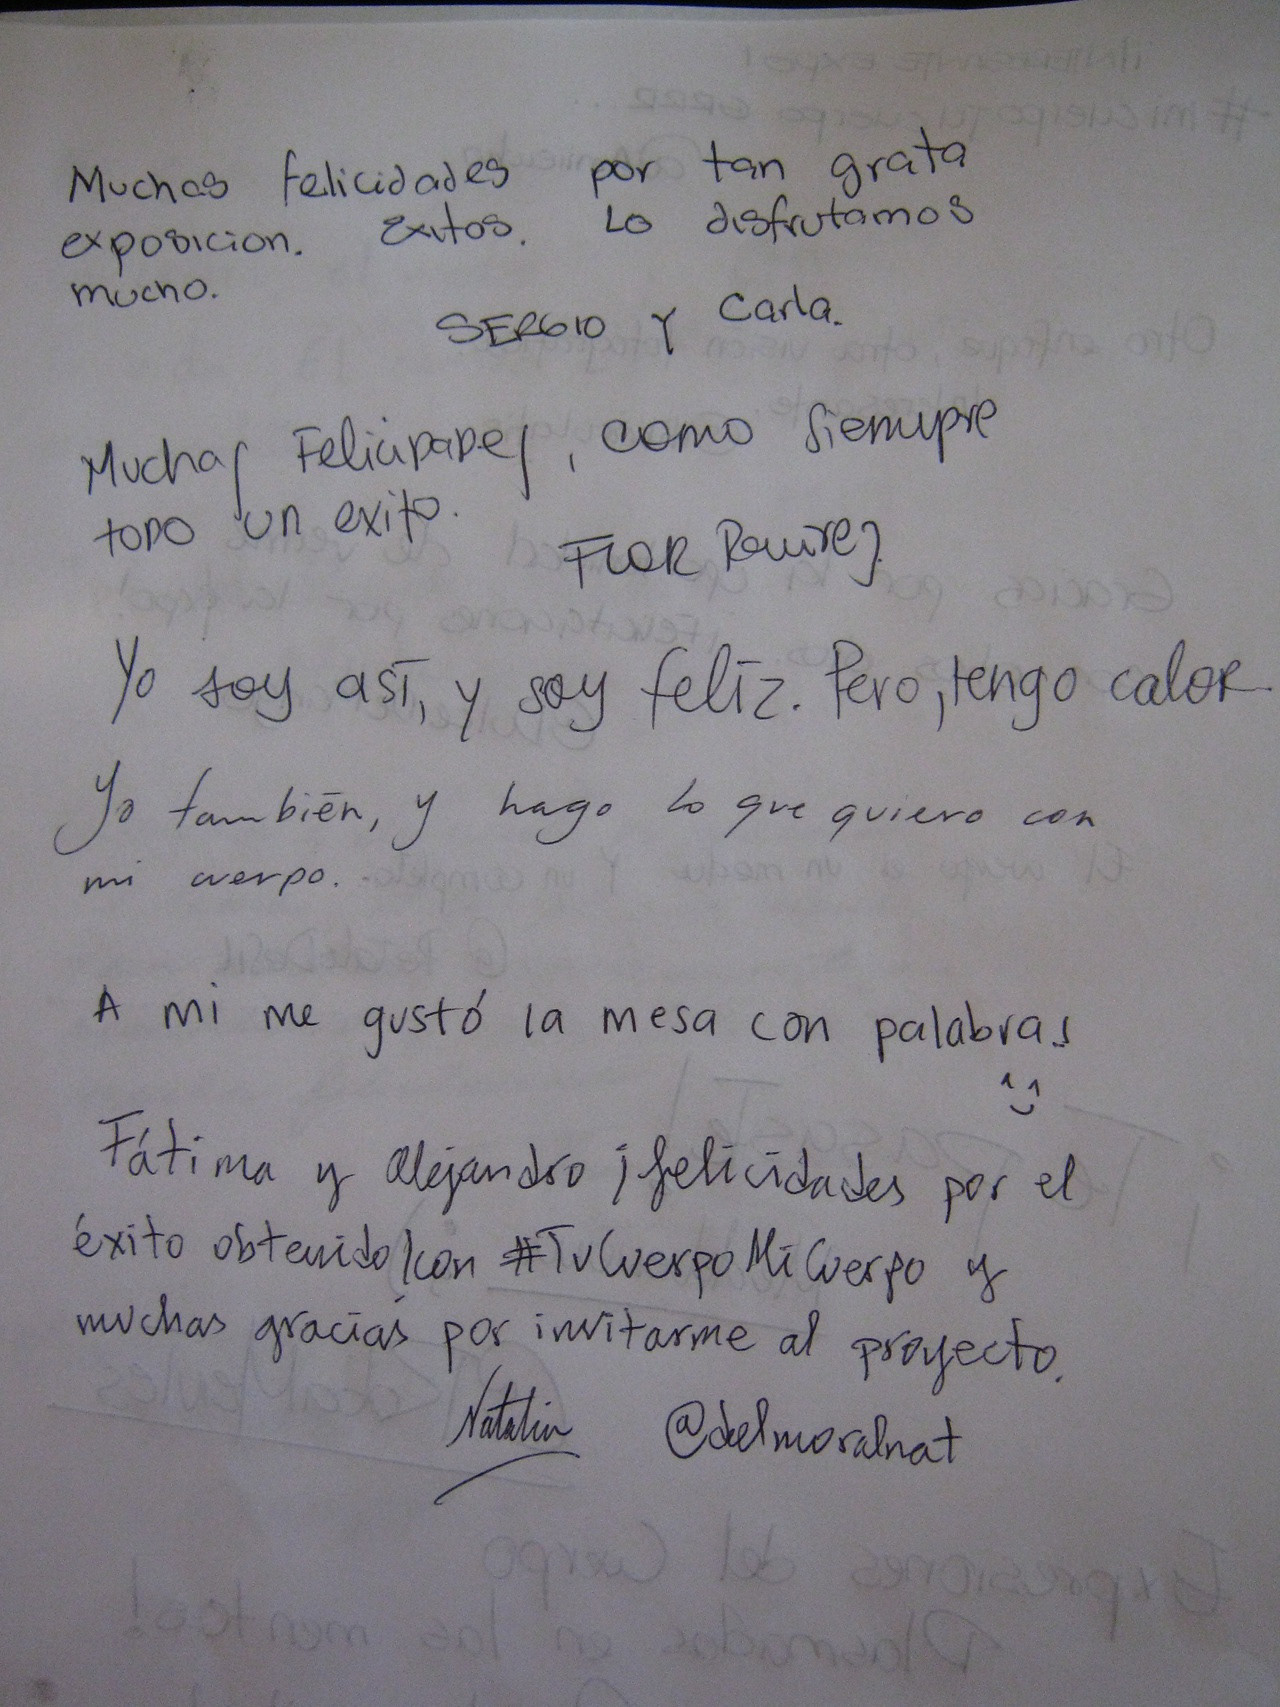 Muchas felicidades por tan grata
exposicion. Exitos. Lo disfrutamos
mucho.
SERGIO Y Carla.
Muchas FeliciDaDes, como siempre
toDo un exito.
FloR Ramirez.
Yo soy así, y soy feliz. Pero, tengo calor
Yo también, y hago lo que quiero con
mi cuerpo.
A mi me gustó la mesa con palabras
Fátima y Alejandro ¡felicidades por el
éxito obtenido! con #TuCuerpoMiCuerpo y
muchas gracias por invitarme al proyecto.
Natalia @delmoralnat